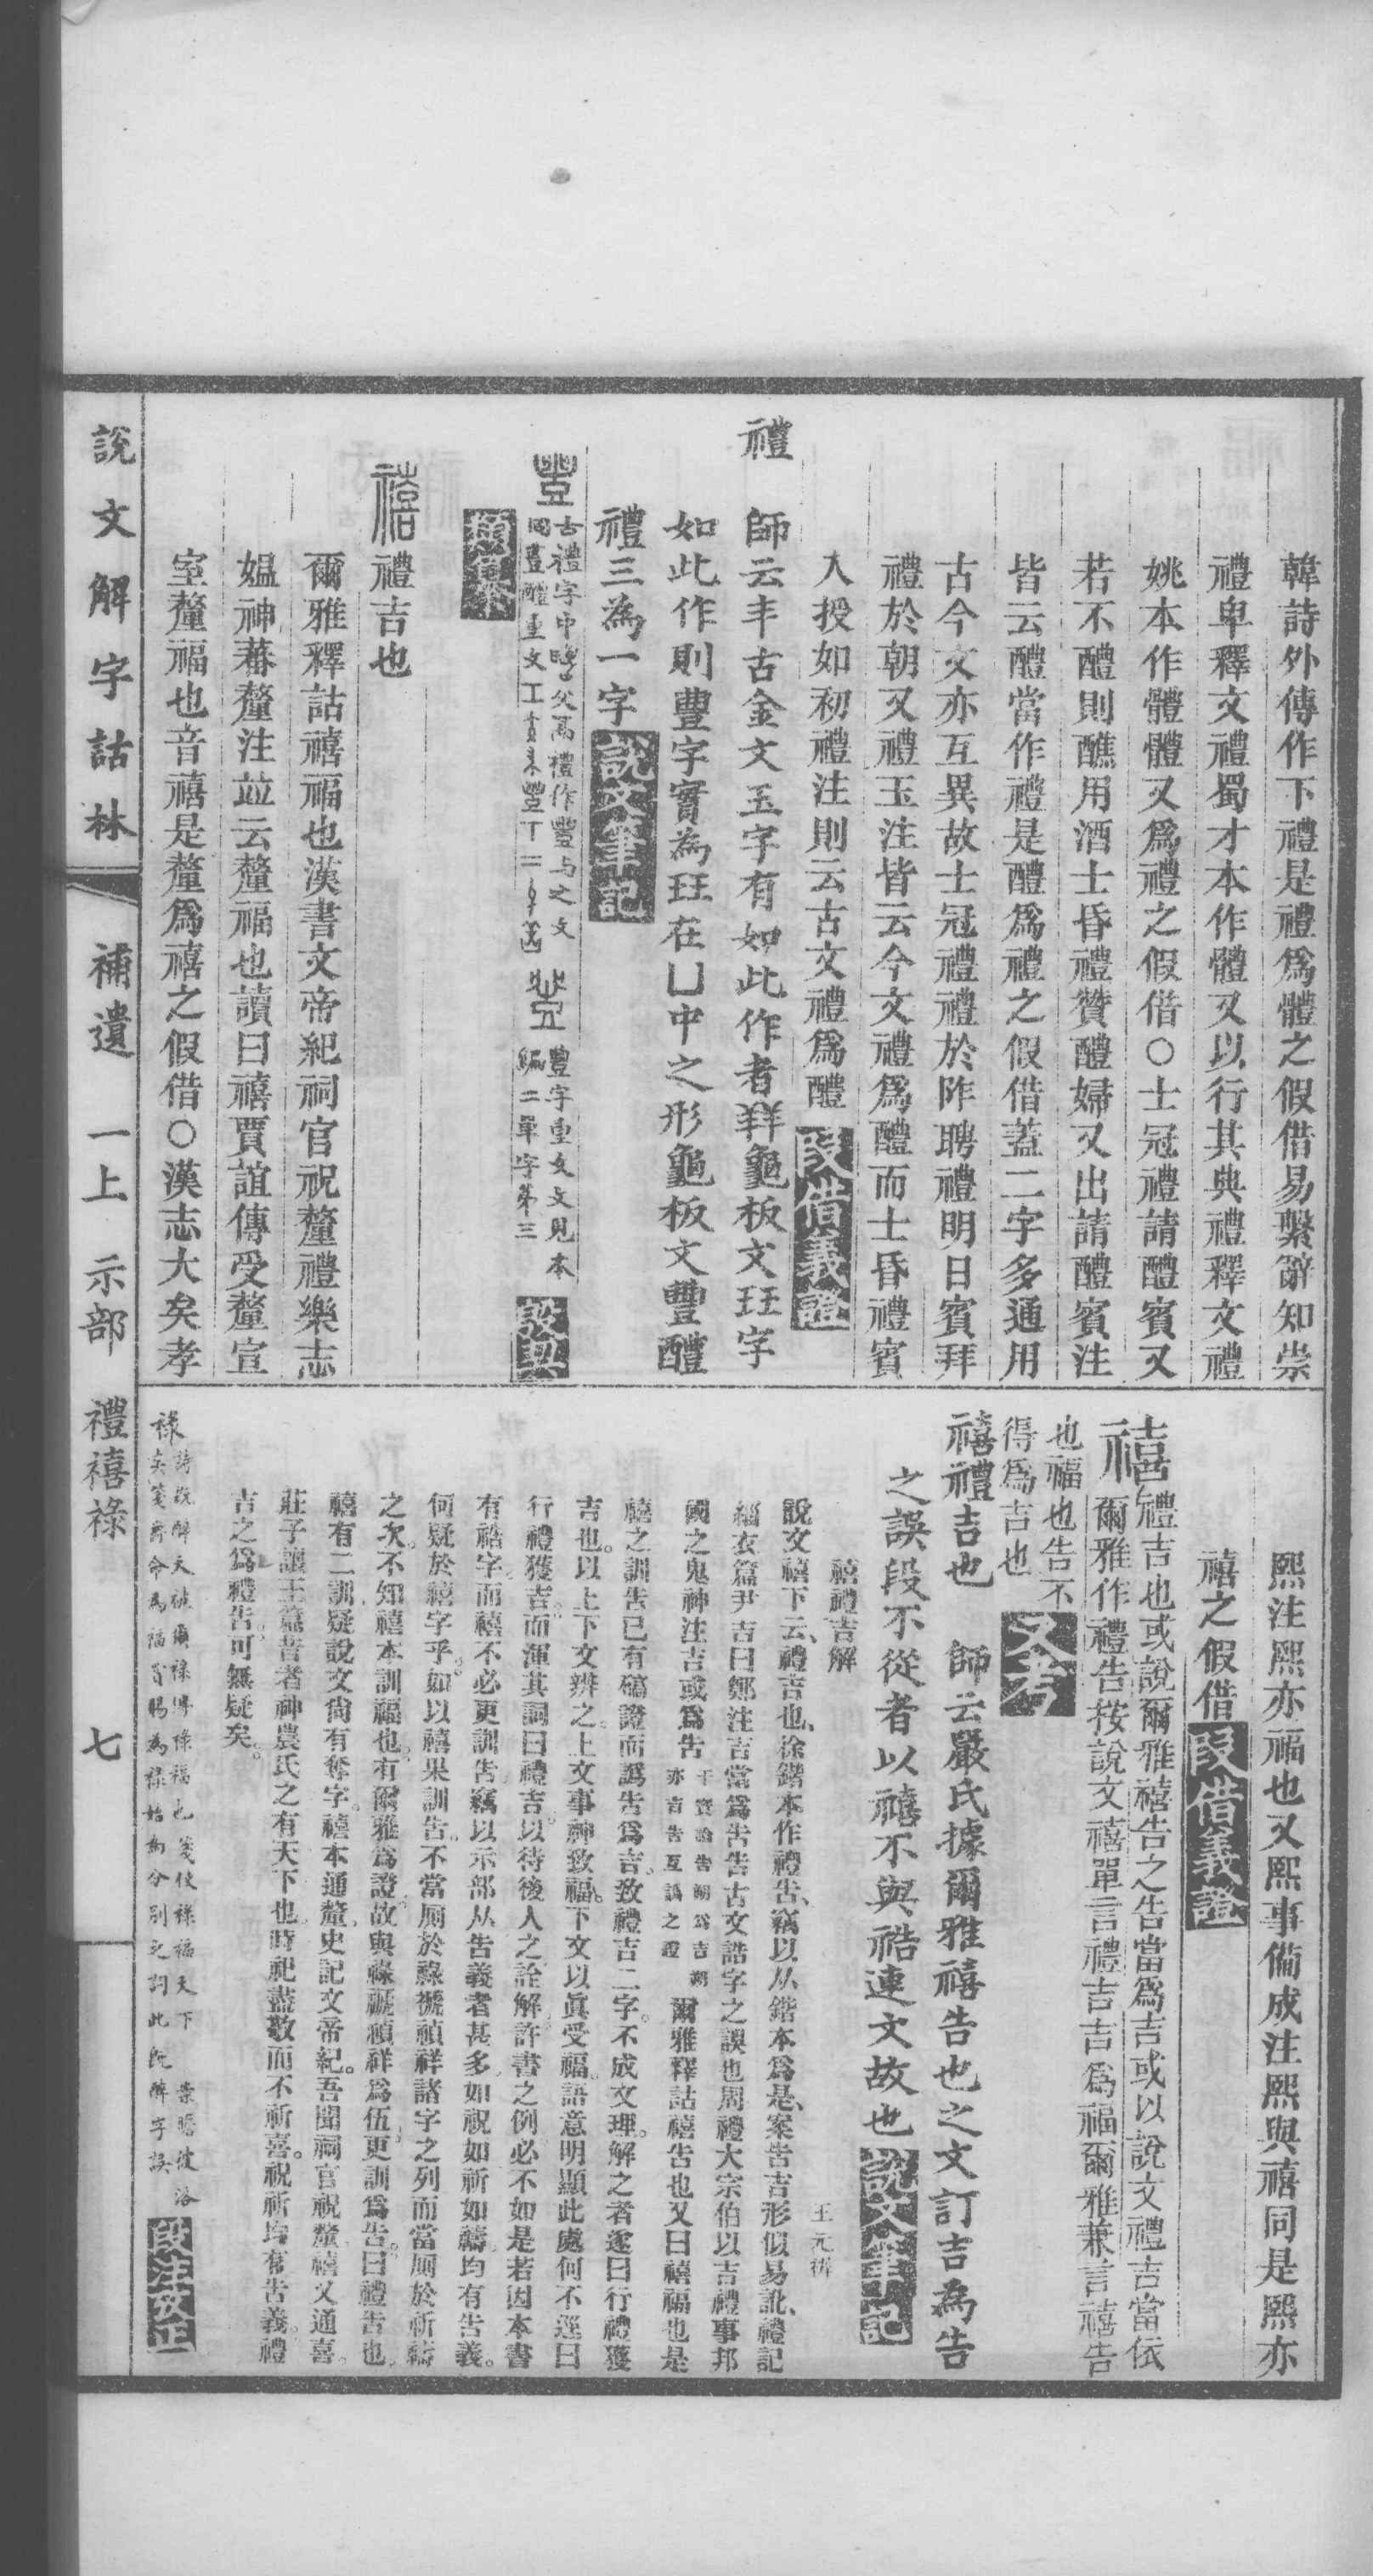 韓詩外傳作下禮是禮爲體之假借易繫辭知崇
禮卑釋文禮蜀才本作體又以行其典禮釋文禮
姚本作體體又爲禮之假借○士冠禮請醴賓又
若不醴則醮用酒士昏禮贊醴婦又出請醴賓注
皆云醴當作禮是醴爲禮之假借蓋二字多通用
古今文亦互異故士冠禮禮於阼聘禮明日賓拜
禮於朝又禮玉注皆云今文禮爲醴而士昏禮賓
入授如初禮注則云古文禮爲醴 段借義證
禮 師云丰古金文玉字有如此作者龜板文玨字
如此作則豊字實為玨在凵中之形龜板文豊醴
禮三為一字 說文筆記
古禮字中父為禮作豐与之文
豐字重文文見本
編二單字第三
禧 禮吉也
爾雅釋詁禧福也漢書文帝紀祠官祝釐禮樂志
媼神蕃釐注竝云釐福也讀曰禧賈誼傳受釐宣
室釐福也音禧是釐爲禧之假借○漢志大矣孝
熙注熙亦福也又熙事備成注熙與禧同是熙亦
禧之假借 段借義證
禧 禮吉也或說爾雅禧告之告當爲吉或以說文禮吉當依
爾雅作禮告按說文禧單言禮吉吉爲福爾雅兼言禧告
也福也告不
得爲吉也
禧禮吉也 師云嚴氏據爾雅禧告也之文訂吉為告
之誤段不從者以禧不與祰連文故也 說文筆記
禧禮吉解 王元穉
說文禧下云、禮吉也、徐鍇本作禮告、竊以从鍇本爲是、案告吉形似易訛、禮記
緇衣篇尹吉曰鄭注吉當爲告告古文誥字之誤也周禮大宗伯以吉禮事邦
國之鬼神注吉或爲告 干寶論告朔爲吉朔亦吉告互譌之證 爾雅釋詁禧告也又曰禧福也是
禧之訓告已有稿證而譌告爲吉。致禮吉二字。不成文理。解之者遂曰行禮獲
吉也。以上下文辨之。上文事神致福。下文以眞受福。語意明顯此處何不逕曰
行禮獲吉。而渾其詞曰禮吉。以待後人之詮解。許書之例。必不如是若因本書
有祰字。而禧不必更訓告。竊以示部从告義者甚多。如祝如祈如禱。均有告義。
何疑於禧字乎。如以禧果訓告。不當厠於祿褫禎祥諸字之列而當厠於祈禱
之次。不知禧本訓福也。有爾雅爲證。故與祿褫禎祥爲伍。更訓爲告。曰禮告也。
禧有二訓。疑說文尙有奪字。禧本通釐。史記文帝紀。吾聞祠官祝釐。禧又通喜。
莊子讓王篇昔者神農氏之有天下也。時祀盡敬而不祈喜。祝祈均有告義。禮
吉之爲禮告。可無疑矣。
祿 詩既醉天被爾祿傳祿福也箋使祿福天下 案瞻彼洛
矣箋爵命為福賞賜為祿始為分別之詞此既醉字誤 段注改正
說文解字詁林 補遺 一上 示部 禮禧祿 七